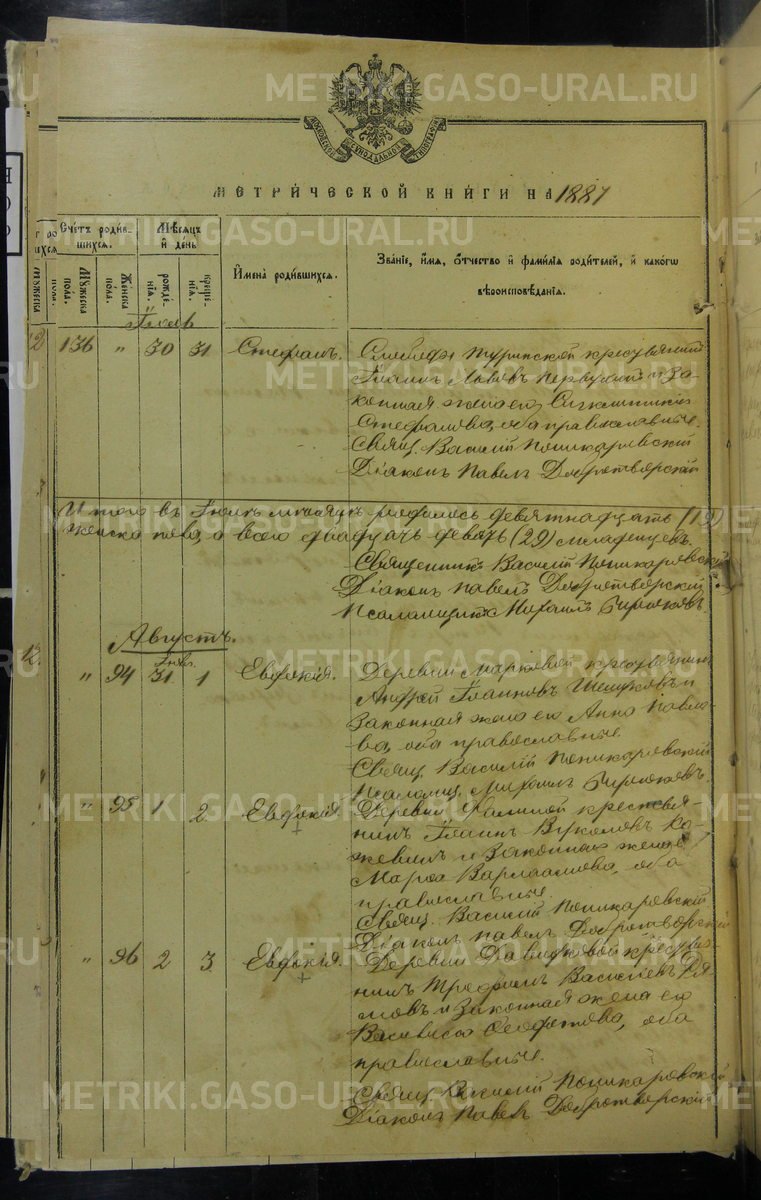 METRIKI.GASO-URAL.RU
МОСКОВСКОЙ СУНОДАЛЬНОЙ ТИПОГРАФІИ
МЕТРИ́ЧЕСКОЙ КНИ́ГИ НА 1887
Сче́тъ роди́в-
шихся.
Мѣ́сяцъ
и҆ де́нь
Мꙋжеска
пола.
Же́нска
пола.
рожде́-
нія.
креще́-
нія.
И҆мена̀ роди́вшихся.
Зва́ніе, и҆́мѧ, ѻ҆́тчество и҆ фами́лїѧ роди́телей, и҆ како́гѡ
вѣроисповѣ́данїѧ.
Іюль
136 " 30 31 Стефанъ.
Слободы Туринской крестьянинъ
Іоаннъ
и за-
конная жена его
Стефанова, оба православные.
Свящ. Василій Поникаровскій
Діаконъ Павелъ Добротворскій
Итого въ Іюлѣ мѣсяцѣ родилось девятнадцать (19)
женска пола, а всего двадцать девять (29) младенцевъ.
Священникъ Василій Поникаровскій
Діаконъ Павелъ Добротворскій
Псаломщикъ Михаилъ Бирюковъ
Августъ.
Іюль.
" 94 31 1 Евдокія.
Деревни Марковой крестьянинъ
Андрей Іоанновъ и
законная жена его Анна Павло-
ва, оба православные.
Свящ. Василій Поникаровскій
Псаломщ. Михаилъ Бирюковъ.
" 95 1 2 Евдокія.
Деревни крестья-
нинъ Іоаннъ Вуколовъ
и законная жена
Варлаамова, оба
православные.
Свящ. Василій Поникаровскій
Діаконъ Павелъ Добротворскій
" 96 2 3 Евдокія.
Деревни Давыдковой крестья-
нинъ Трофимъ Васильевъ
и законная жена его
Васса Феофанова, оба
православные.
Свящ. Василій Поникаровскій
Діаконъ Павелъ Добротворскій